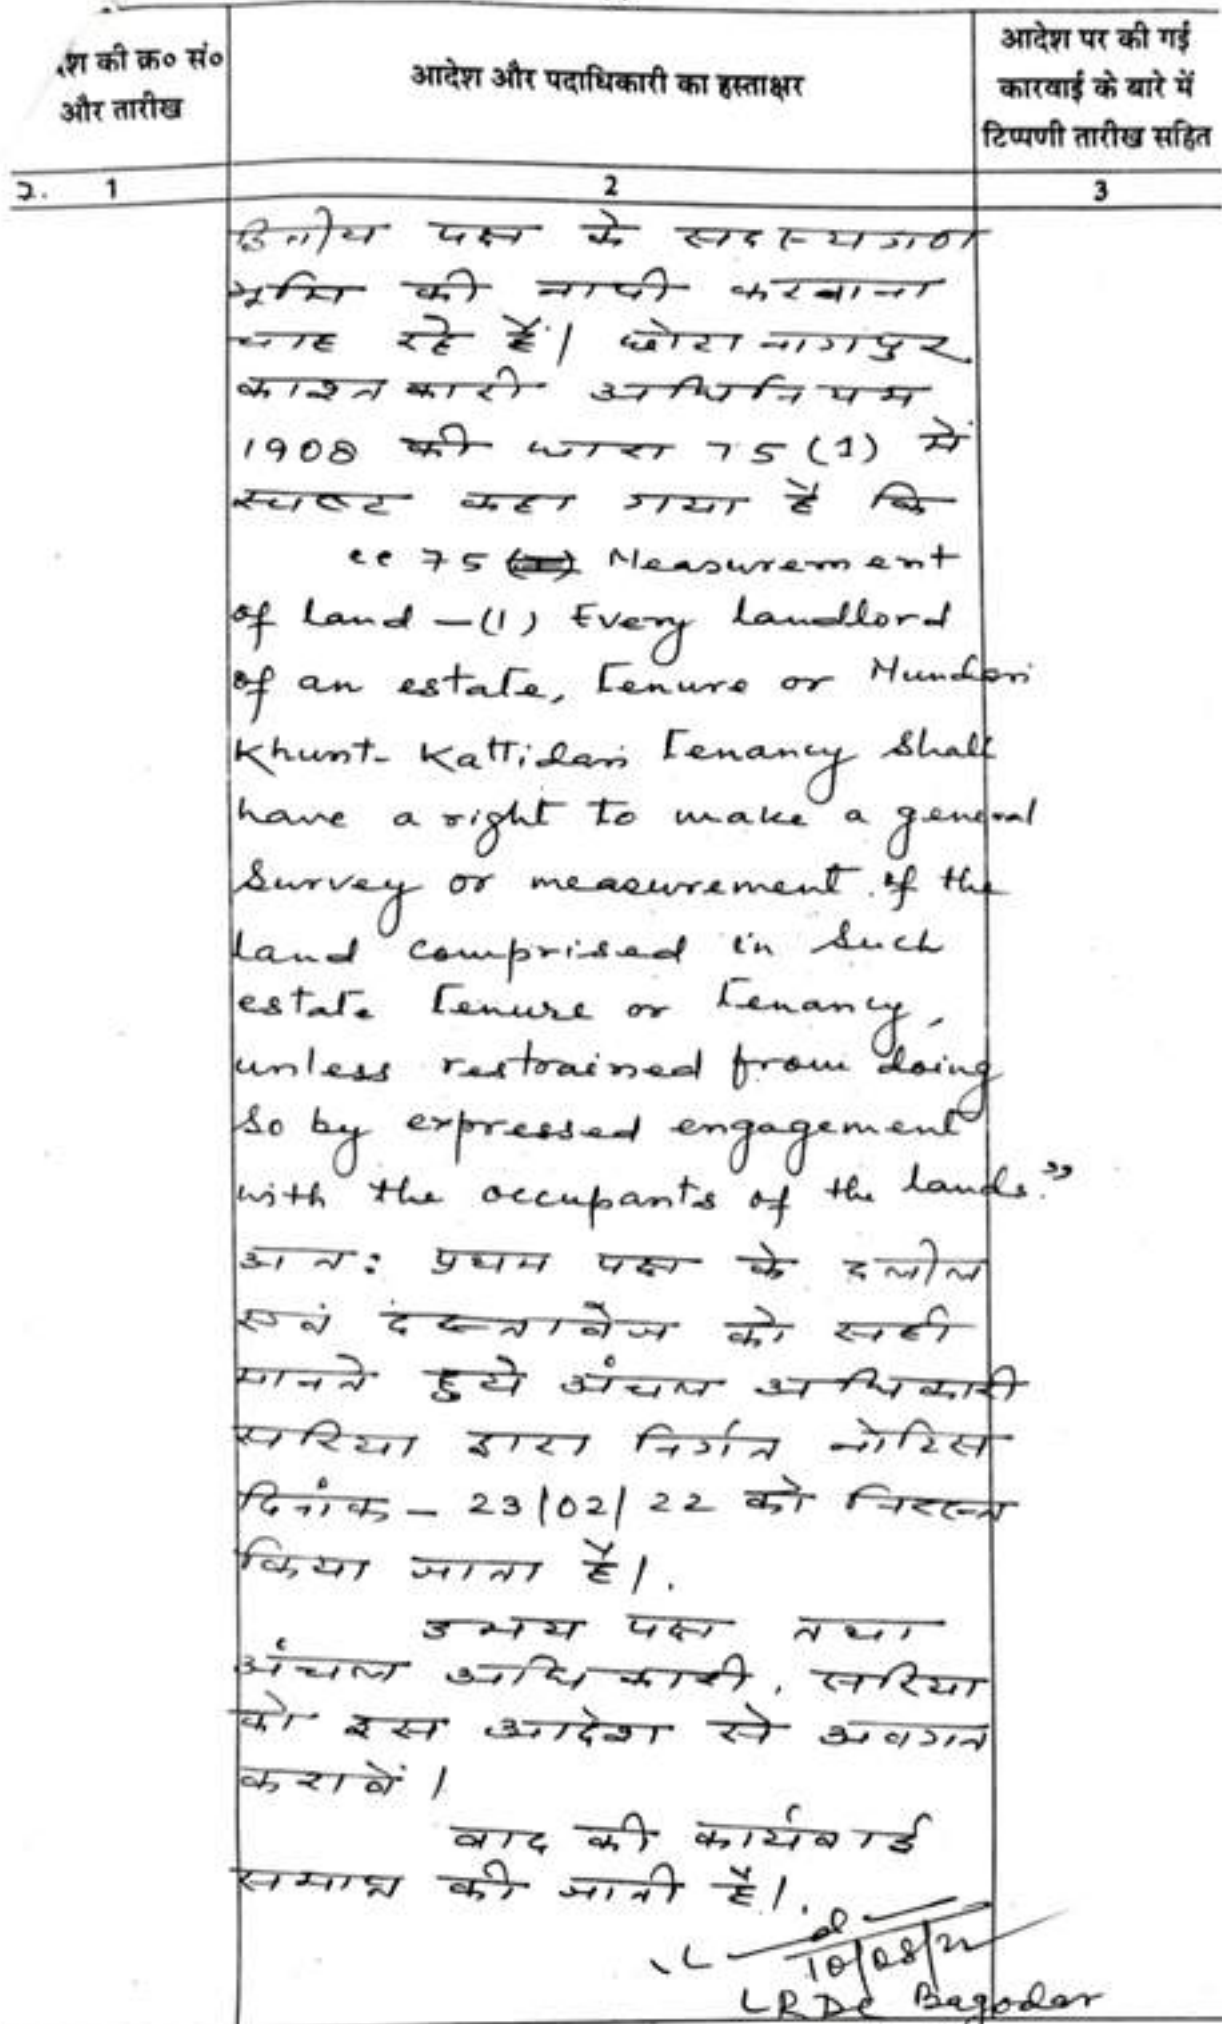 श की क्र० सं०
और तारीख
आदेश और पदाधिकारी का हस्ताक्षर
आदेश पर की गई
कारवाई के बारे में
टिप्पणी तारीख सहित
1
2
3
द्वितीय पक्ष के सदस्यगण
भूमि की नापी करवाना
चाह रहे हैं। छोटानागपुर
काश्तकारी अधिनियम
1908 की धारा 75 (1) में
स्पष्ट कहा गया है कि
"75 Measurement
of land – (1) Every landlord
of an estate, tenure or Mundari
Khunt- Kattidari tenancy shall
have a right to make a general
survey or measurement of the
land comprised in such
estate tenure or tenancy,
unless restrained from doing
so by expressed engagement
with the occupants of the lands."
अतः प्रथम पक्ष के दलील
एवं दस्तावेज को सही
मानते हुये अंचल अधिकारी
सरिया द्वारा निर्गत नोटिस
दिनांक – 23/02/22 को निरस्त
किया जाता है।
उभय पक्ष तथा
अंचल अधिकारी, सरिया
को इस आदेश से अवगत
करावें।
वाद की कार्यवाई
समाप्त की जाती है।
10/08/22
LRDC Bagodar